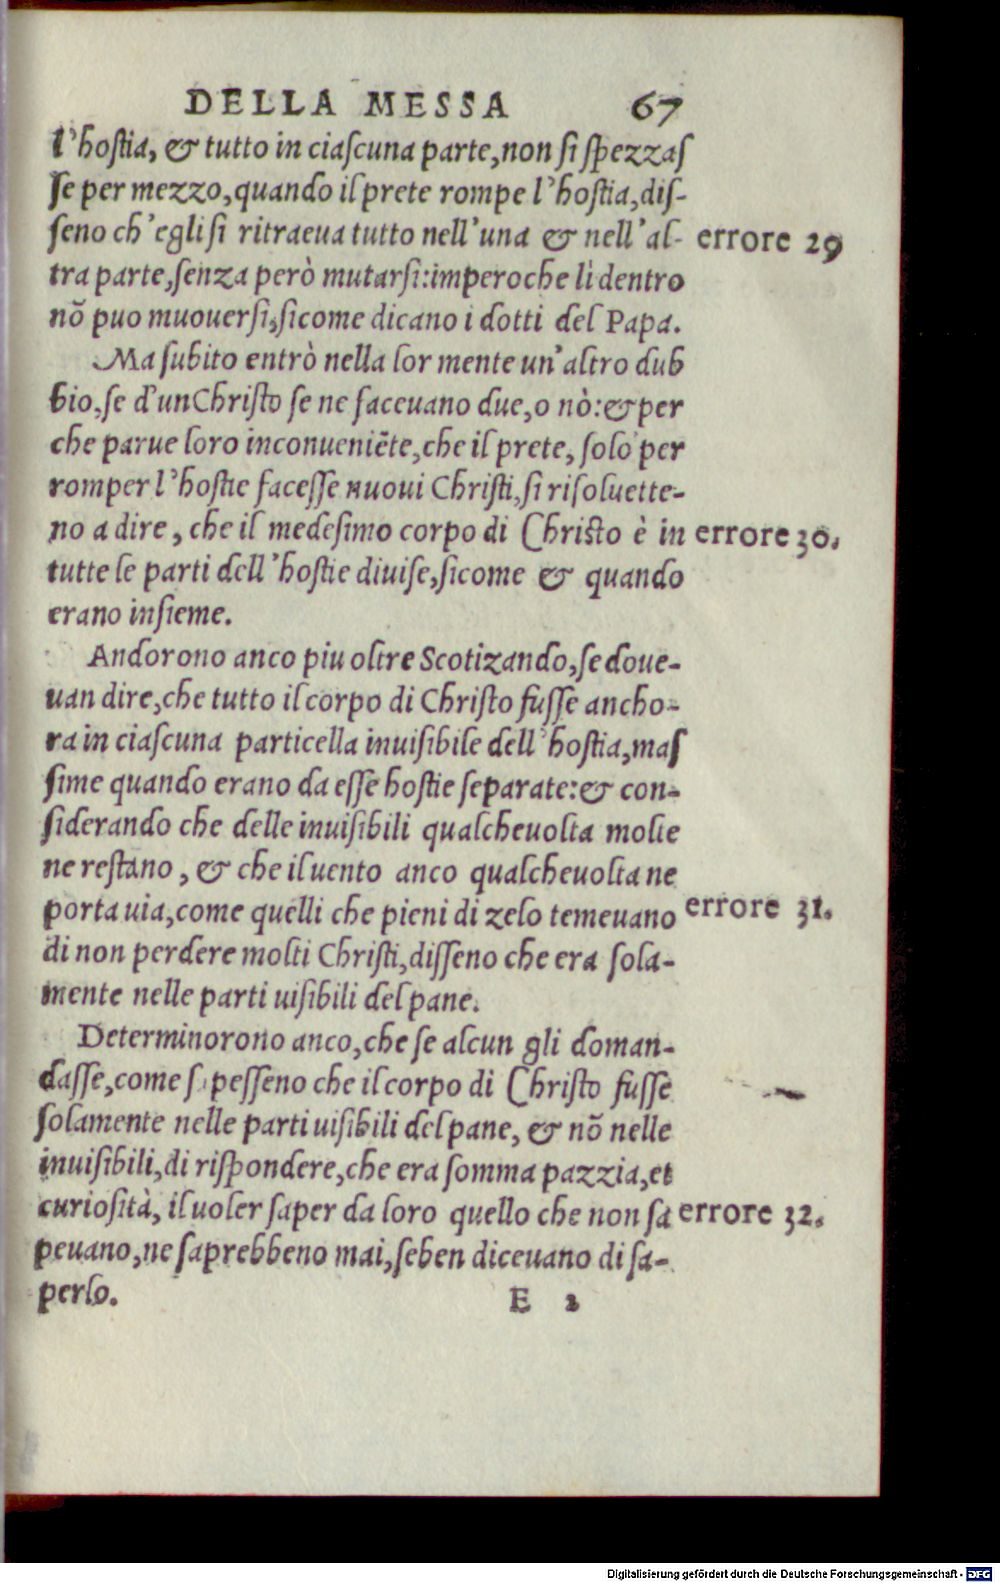 DELLA MESSA 67
l'hostia, & tutto in ciascuna parte, non si spezzas
se per mezzo, quando il prete rompe l'hostia, dis-
seno ch'egli si ritraeua tutto nell'una & nell'al- errore 29
tra parte, senza però mutarsi: imperoche lì dentro
nõ puo muouersi, sicome dicano i dotti del Papa.
Ma subito entrò nella lor mente un'altro dub
bio, se d'un Christo se ne faceuano due, o nò: & per
che parue loro inconueniẽte, che il prete, solo per
romper l'hostie facesse nuoui Christi, si risoluette-
no a dire, che il medesimo corpo di Christo è in errore 30.
tutte le parti dell'hostie diuise, sicome & quando
erano insieme.
Andorono anco piu oltre Scotizando, se doue-
uan dire, che tutto il corpo di Christo fusse ancho-
ra in ciascuna particella inuisibile dell'hostia, mas
sime quando erano da esse hostie separate: & con-
siderando che delle inuisibili qualcheuolta molte
ne restano, & che il uento anco qualcheuolta ne
porta uia, come quelli che pieni di zelo temeuano errore 31.
di non perdere molti Christi, disseno che era sola-
mente nelle parti uisibili del pane.
Determinorono anco, che se alcun gli doman-
dasse, come s pesseno che il corpo di Christo fusse
solamente nelle parti uisibili del pane, & nõ nelle
inuisibili, di rispondere, che era somma pazzia, et
curiosità, il uoler saper da loro quello che non sa errore 32.
peuano, ne saprebbeno mai, seben diceuano di sa-
perlo. E 2
Digitalisierung gefördert durch die Deutsche Forschungsgemeinschaft - DFG